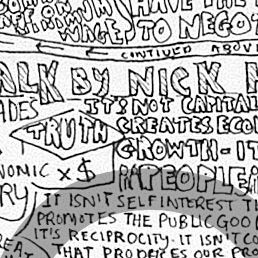 HAVE THE
TO NEGOT
CONTINUED ABOVE
ALK BY NICK
ADES
IT'S NOT CAPITAL
TRUTH
CREATES ECO
GROWTH - IT
NOMIC X $
PEOPLE
RY
IT ISN'T SELF INTEREST TH
PROMOTES THE PUBLIC GOO
IT'S RECIPROCITY. IT ISN'T CO
THAT PRODUCES OUR PRO